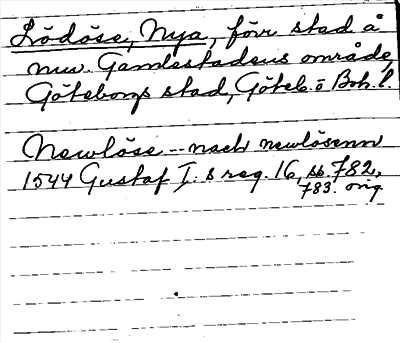 Lödöse, Nya, förr stad å
nuv. Gamlestadens område,
Göteborgs stad, Göteb. o Boh. l.
Newlöse -- nach newlösenn
1544 Gustaf I:s reg. 16, ss. 782,
783. orig.